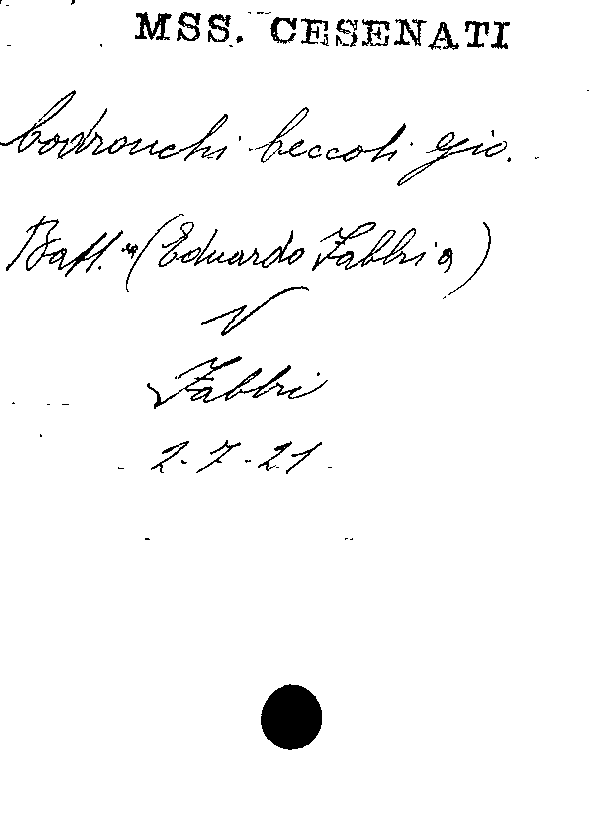 MSS. CESENATI
Codronchi Ceccoli Gio.
Batt.ª (Eduardo Fabbri a)
V
Fabbri
2-7-21